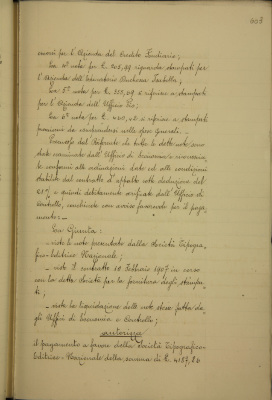 nuovi per l'Azienda del Credito Fondiario;
La 4ª nota per L. 205,49 riguarda stampati per
l'Azienda dell'Esattoria
La 5ª nota per L. 229,09 si riferisce a stampati
per l'Azienda dell'Ufficio Pio;
La 6ª nota per L. si riferisce a stampati
promiscui da comprendersi nelle spese generali.
Premesso dal Referente che tutte le dette note sono
state esaminate dall'Ufficio di Economia e riconosciu-
te conformi alle ordinazioni date ed alle condizioni
stabilite dal contratto d'appalto colla deduzione del
e quindi debitamente verificate dall'Ufficio di
Controllo, conchiude con avviso favorevole per il paga-
mento:-
La Giunta:
- viste le note presentate dalla Società Tipogra-
fico-Editrice Nazionale;
- visto il contratto 12 Febbraio 1907 in corso
con la detta Società per la fornitura degli stampa-
ti;
- vista la liquidazione delle note stesse fatta da-
gli Uffici di Economia e Controllo;
autorizza
il pagamento a favore della Società Tipografico-
Editrice-Nazionale della somma di L. 4187,26